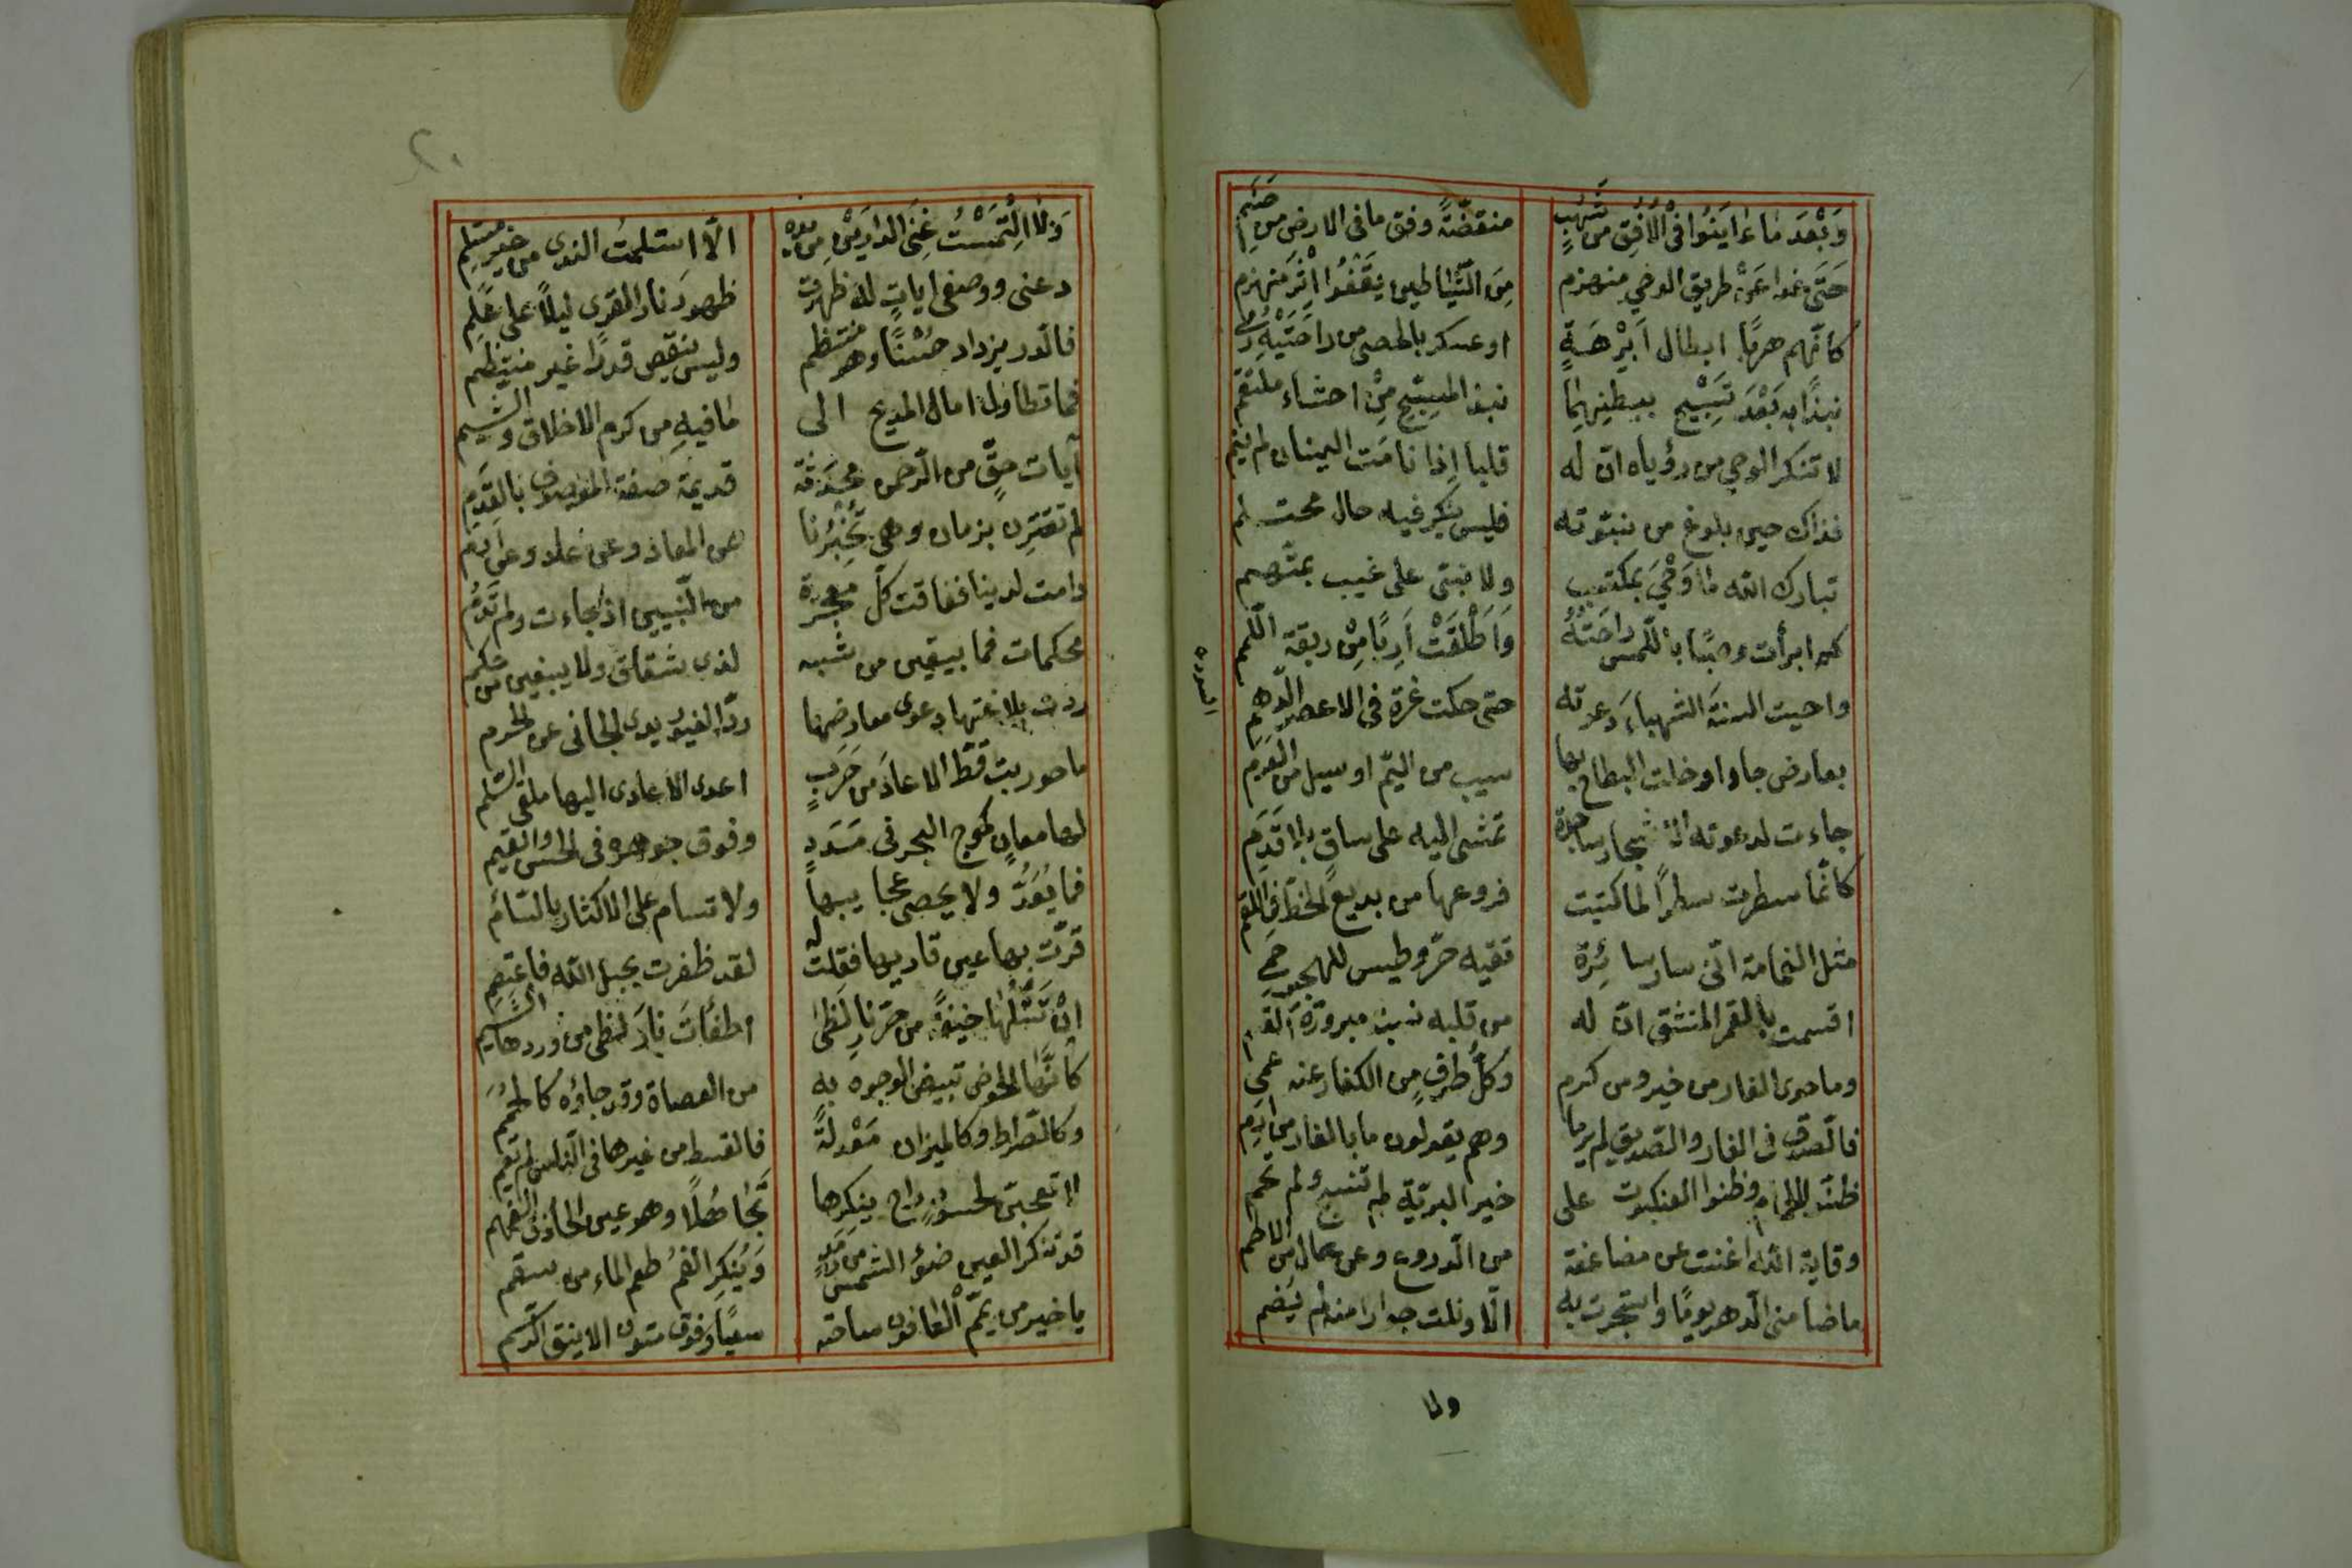 وَبَعْدَ مَا عَايَنُوا فِى الْاُفُقِ مِن شُهُبٍ منقضّةً وفق ما فى الارض من صَنَمِ
حَتّى غدا عَنْ طريق الوحي منهزم مِنَ الشَّياطين يَقْفُوا اِثْرَ منهزم
كانّهم هربًا ابطال اَبْرَهَةٍ او عسكر بالحصى من راحَتَيْهِ رُمى
نبذًا به بَعْدَ تَسْبِيْحٍ ببطنهما نبذ المسبّح مِنْ احشاء ملتقم
لا تنكر الوحي من رؤياه انّ له قلبا اِذا نامَت العينان لم ينم
فذاك حين بلوغ من نبوّته فليس ينكر فيه حال محتلم
تبارك اللّه ما وَحْيٌ بمكتسب ولا نبىّ على غيب بمتّهم
كم ابرأت وصبًا باللّمس راحَتُهُ وَاَطْلَقَتْ اَرِبًا مِنْ ربقة اللّمم
واحيت السنَة الشهباءَ دعوته حتى حكت غرّة فى الاعصر الدّهم
بعارض جاد او خلت البطاح بها سيب من اليّم او سيل من العَرِم
السورة
جاءت لدعوته الاشجار ساجدة تمشى اليه على ساقٍ بلا قَدَم
كانّما سطرت سطرًا لما كتبت فروعها من بديع الخطّ فى اللقم
مثل الغمامة انّى سار سائِرة تقيه حرّ وطيس للهجير حَمى
اقسمت بالقمر المنشق انّ له من قلبه نسبة مبرورة القسم
وما حوى الغار من خير ومن كرم وَكلُّ طرفٍ من الكفار عنه عمى
فالصّدق فى الغار والصّديق لم يرما وهم يقولون ما بالغار من ارم
ظنّوا الحمام وظنوا العنكبوت على خير البريّة لم تنسج ولم تحم
وقاية اللّه اغنت عن مضاعفة من الّدروع وعن عال من الاطم
ما ضامنى الّدهر يومًا واستجرت به الّا ونلت جوارا منه لم يُضم
ولا
٢٠
وَلَا الْتَمَسْتُ غِنَى الدارَيْنِ مِن يده الّا استلمتُ الندى من خير مستلم
دعنى ووصفى اياتٍ له ظهرت ظهورَ نار القرى ليلاً على علم
فالدّر يزداد حُسْنًا وهو منتظم وليس ينقص قدرًا غير منتظم
فما تطاول امال المديح الى ما فيهِ من كرم الاخلاق والشيم
آيات حقٍّ من الرّحمن محْدَثة قديمة صفة الموصوف بالقِدَم
لم تقترن بزمان وهى تُخْبِرُنا عن المعاد وعن عاد وعن ارم
دامت لدينا ففاقت كلّ معجزة من النّبيين اذ جاءت ولم تَدُم
محكمات فما يبقين من شبه لذى شقاق ولا يبغين من حكم
ردّت بلاغتها دعوى معارضها ردّ الغيور يدى الجانى عن الحرم
ما حوربت قطّ الا عادَ من حَرَبٍ اعدى الاعادى اليها ملقى السّلم
لها معانٍ كموج البحر فى مَدَدٍ وفوق جوهره فى الحسن والقيم
فما يُعَدُّ ولا يحصى عجايبها ولا تسام على الاكثار بالسّأم
قرّت بها عين قاريها فقلت له لقد ظفرت بحبل اللّه فاعتصم
اِنْ تَتْلُها خيفةً من حرّ نارِ لَظى اطفأت نارَ لظى من وردها الشّبم
كانّها الحوض تبيض الوجوه به من العصاة وقد جاؤه كالحُمَم
وكالصّراط وكالميزان مَعْدلةً فالقسط من غيرها فى النّاس لم يقم
لا تعجبن لحسودٍ راح ينكرها تجَاهُلًا وهو عين الحاذق الفهم
قد تنكر العين ضوء الشمس من رَمَدٍ وَيُنْكِرُ الفمُ طعم الماء من سقم
يا خير من يمّم العافون ساحته سعيًا وفوق متون الاينق الرّسم